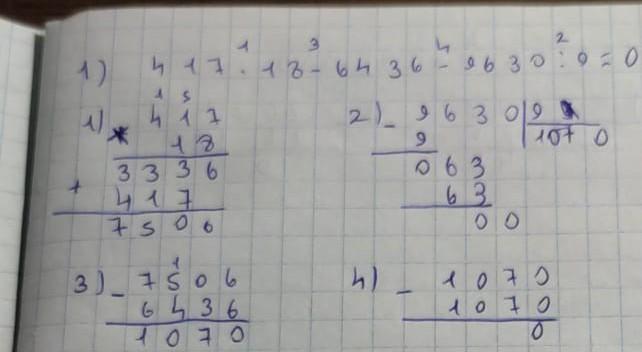 1 3 4 2
1) 417 · 18 - 6436 - 9630 : 9 = 0
1 5
1) 417 2) - 9630 | 9
× 18 9 1070
3336 063
+ 417 63
7506 00
1
3) - 7506 4) - 1070
6436 1070
1070 0